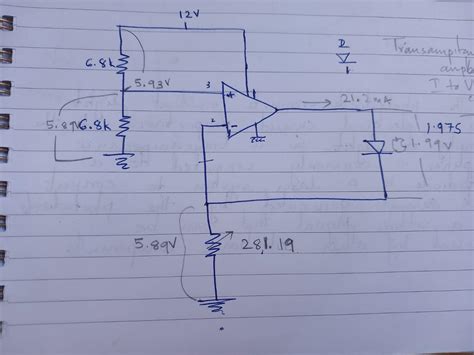 12V
D
Transamp
6.8k
5.93V
3
+
I to V
21.2mA
5.89V
6.8k
2
-
1.975
1.99V
5.89V
281.19